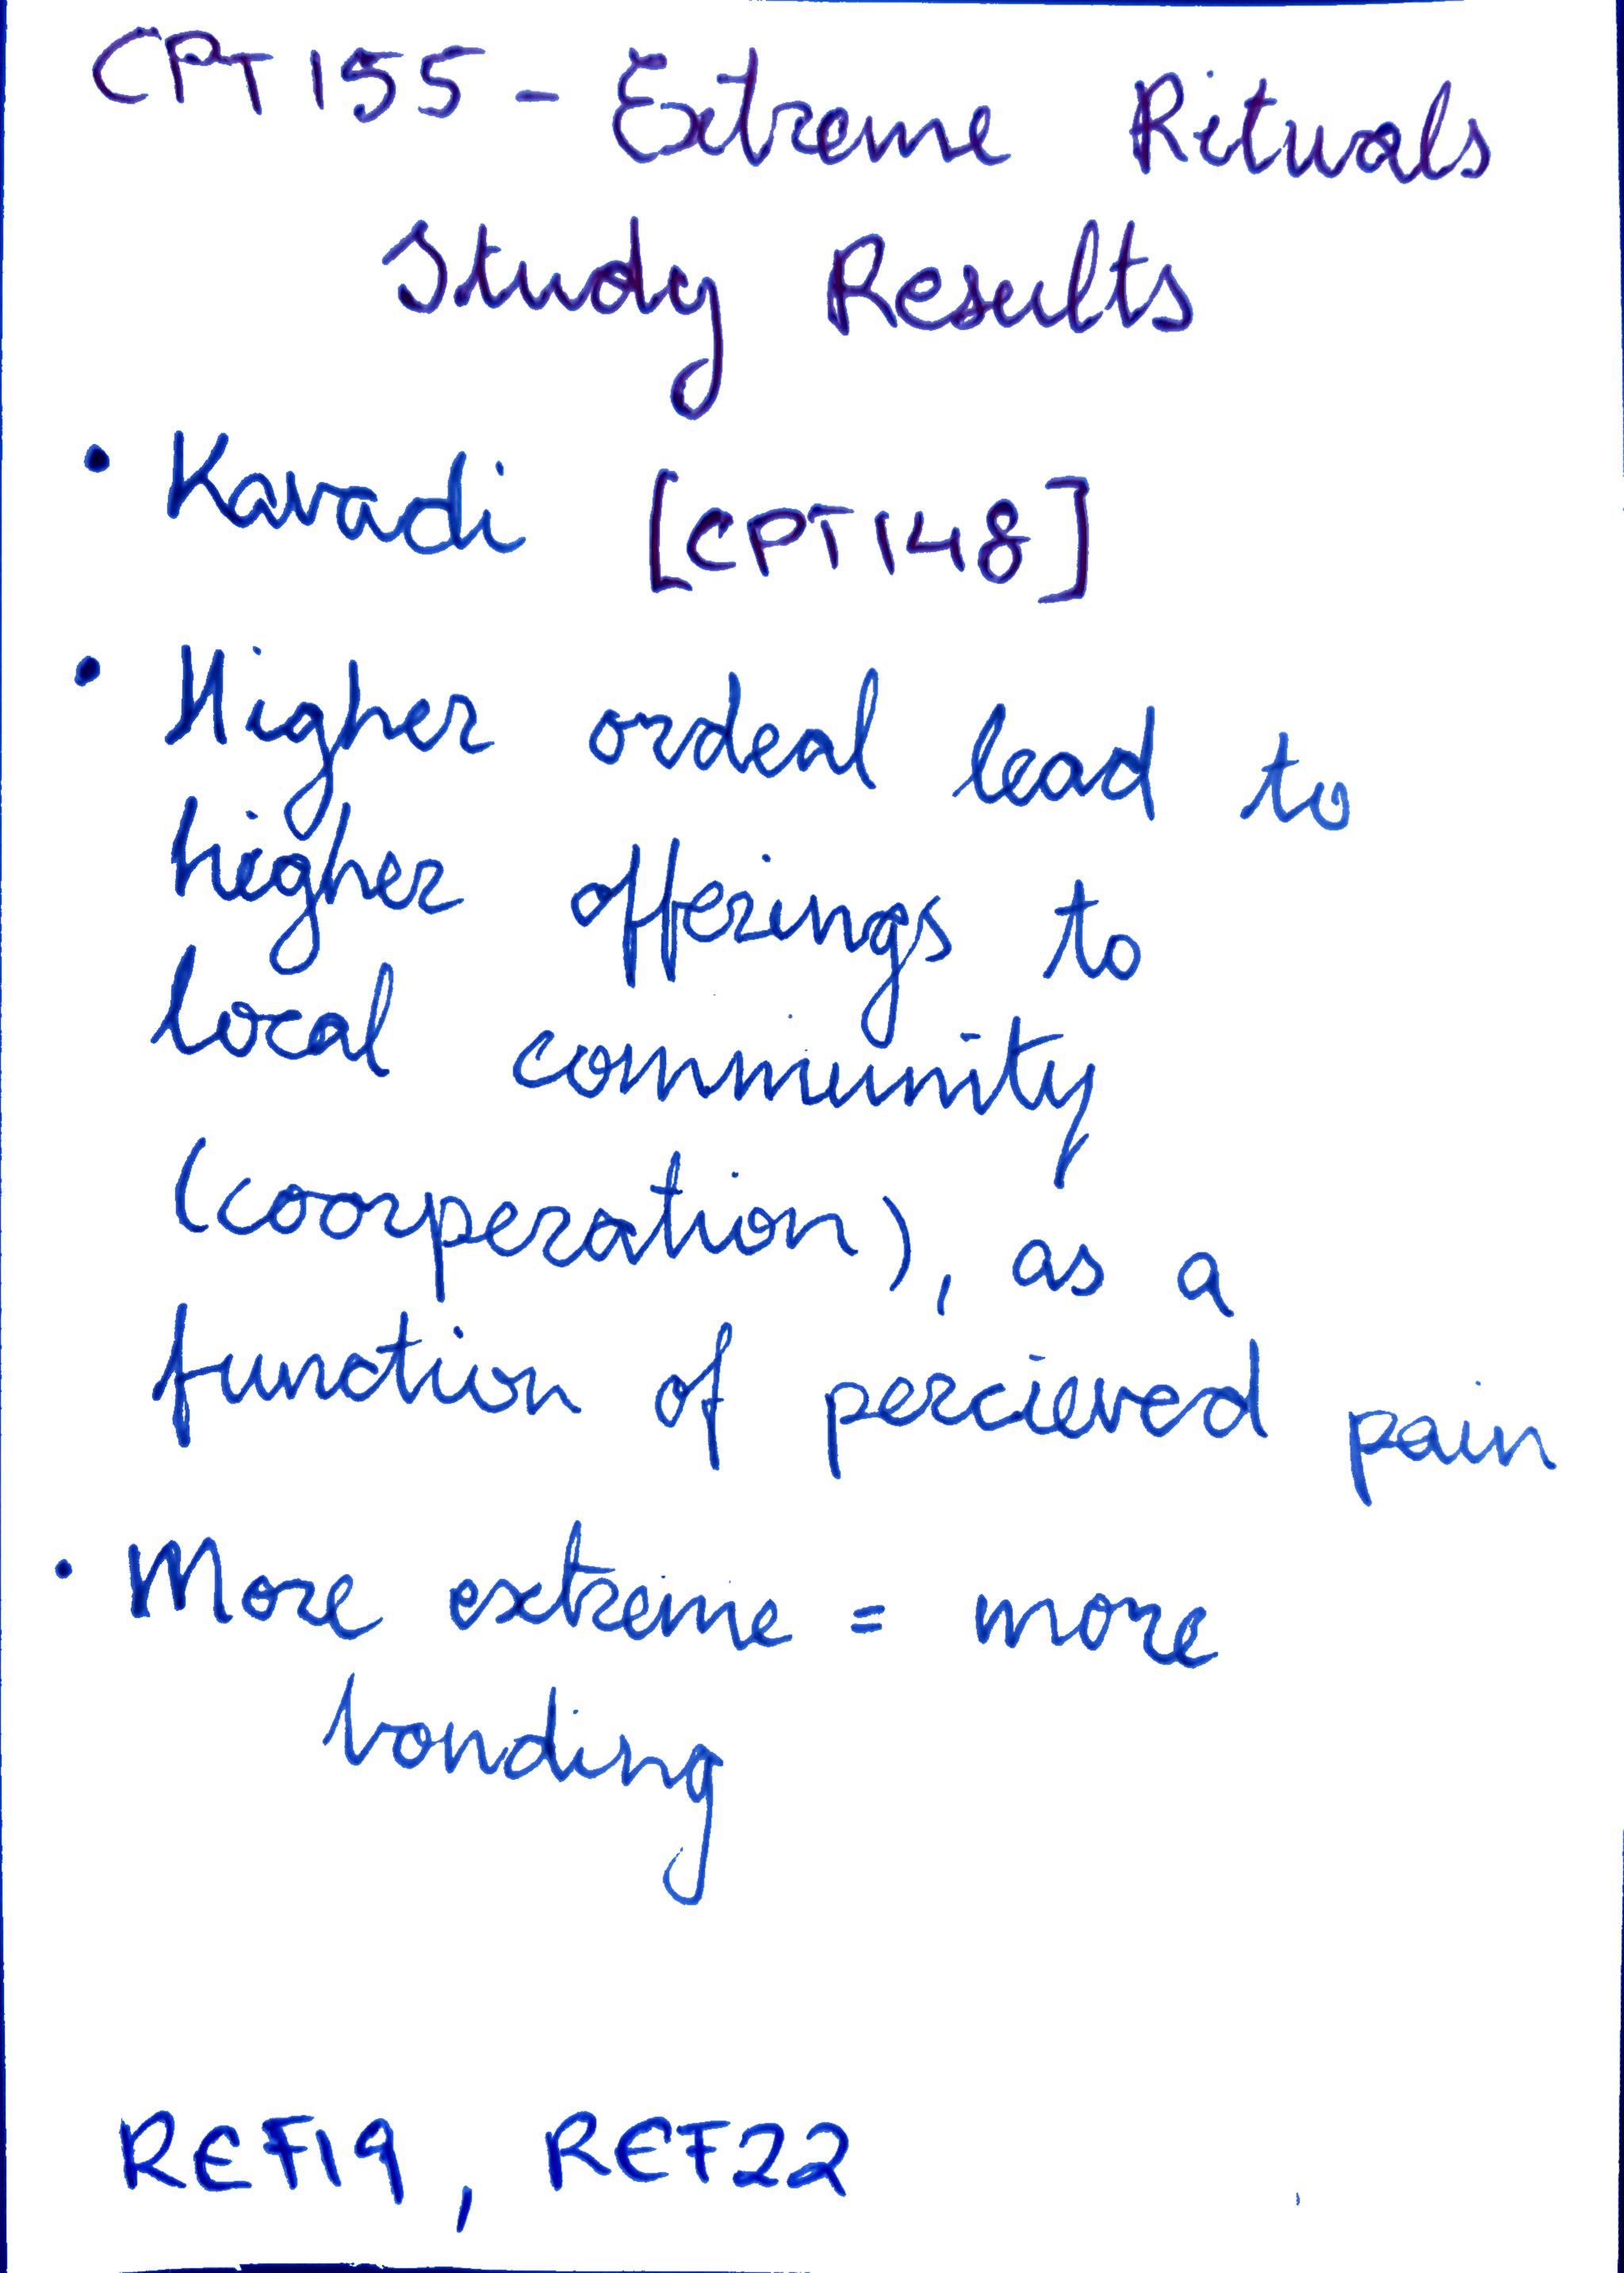 CPT155 - Extreme Rituals
Study Results
• Kavadi [CPT148]
• Higher ordeal lead to
higher offerings to
local community
(coorperation), as a
function of percieved pain
• More extreme = more
bonding
REF19, REF22